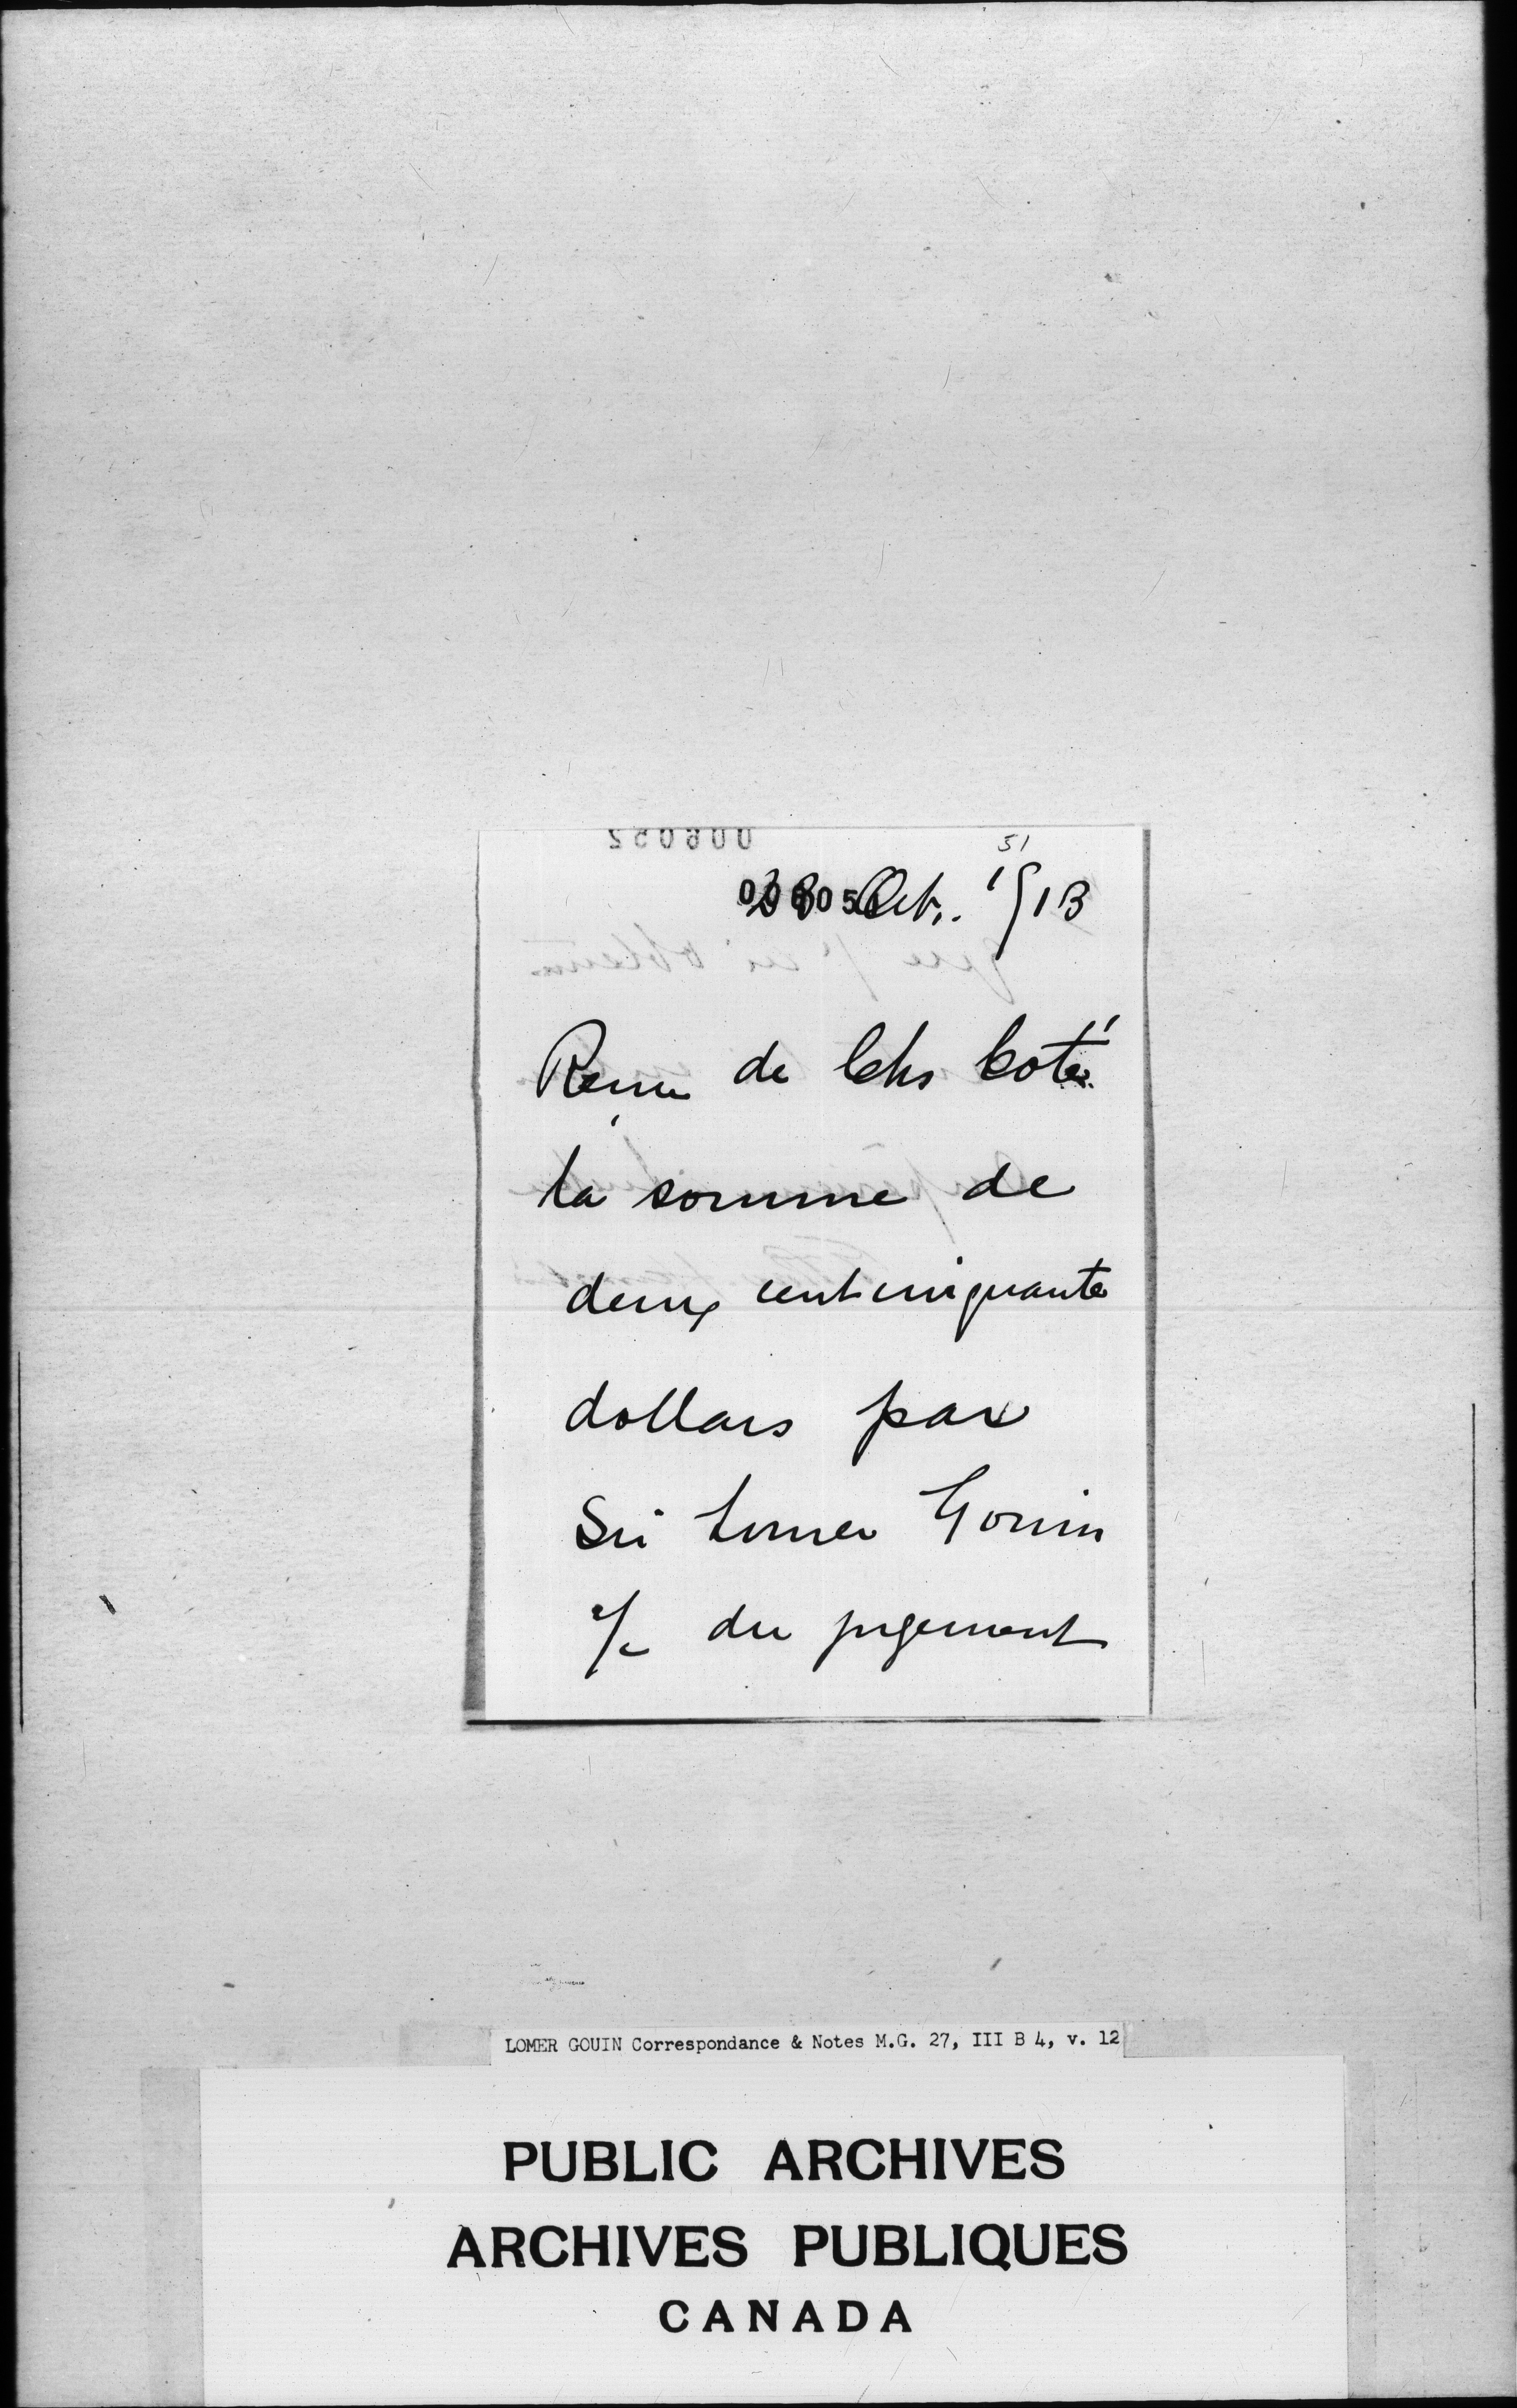 51
Oct. 1913
Recu de Chs Coté
la somme de
deux cent cinquante
dollars par
Sir Lomer Gouin
a/c du jugement
LOMER GOUIN Correspondance & Notes M.G. 27, III B 4, v. 12
PUBLIC ARCHIVES
ARCHIVES PUBLIQUES
CANADA